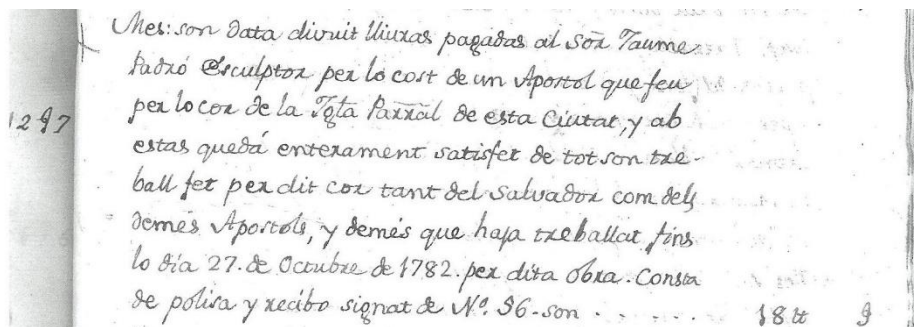 Mes: son data divuit lliuras pagadas al Sōr Jaume
Padró Esculptor per lo cost de un Apostol que feu
per lo cor de la Igl͞a Parr͞al de esta Ciutat, y ab
1297
estas quedá enterament satisfet de tot son tre-
ball fet per dit cor tant del Salvador com dels
demes Apostols, y demés que haja treballat fins
lo dia 27. de Octubre de 1782. per dita obra. Consta
de polisa y recibo signat de Nº. 96 - son . . . . . . 18 ₶ 9